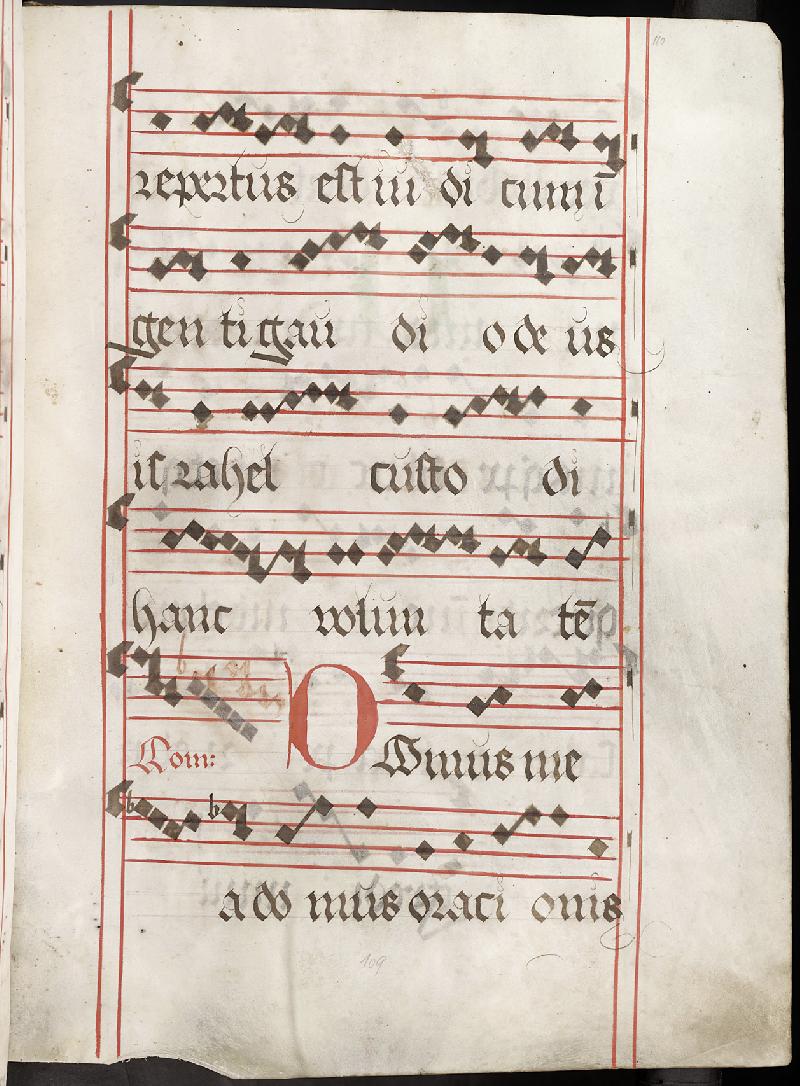 110
repertus est in di cumi ī
gen ti gau di o de us
is rahel custo di
hanc volun ta tē
Com: Dominus me
a do mus oraci onis
109